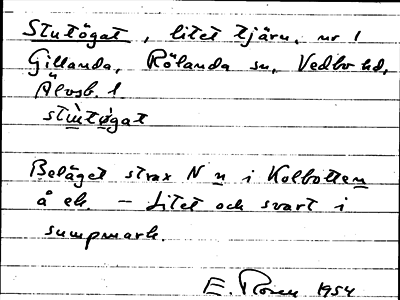 Stutögat, litet tjärn, nr 1
Gillanda, Rölanda sn, Vedbo hd,
Älvsb. l
stùtögat
Beläget strax N n i Kolbotten
å ek. – Litet och svart i
sumpmark.
E. Rosen 1954